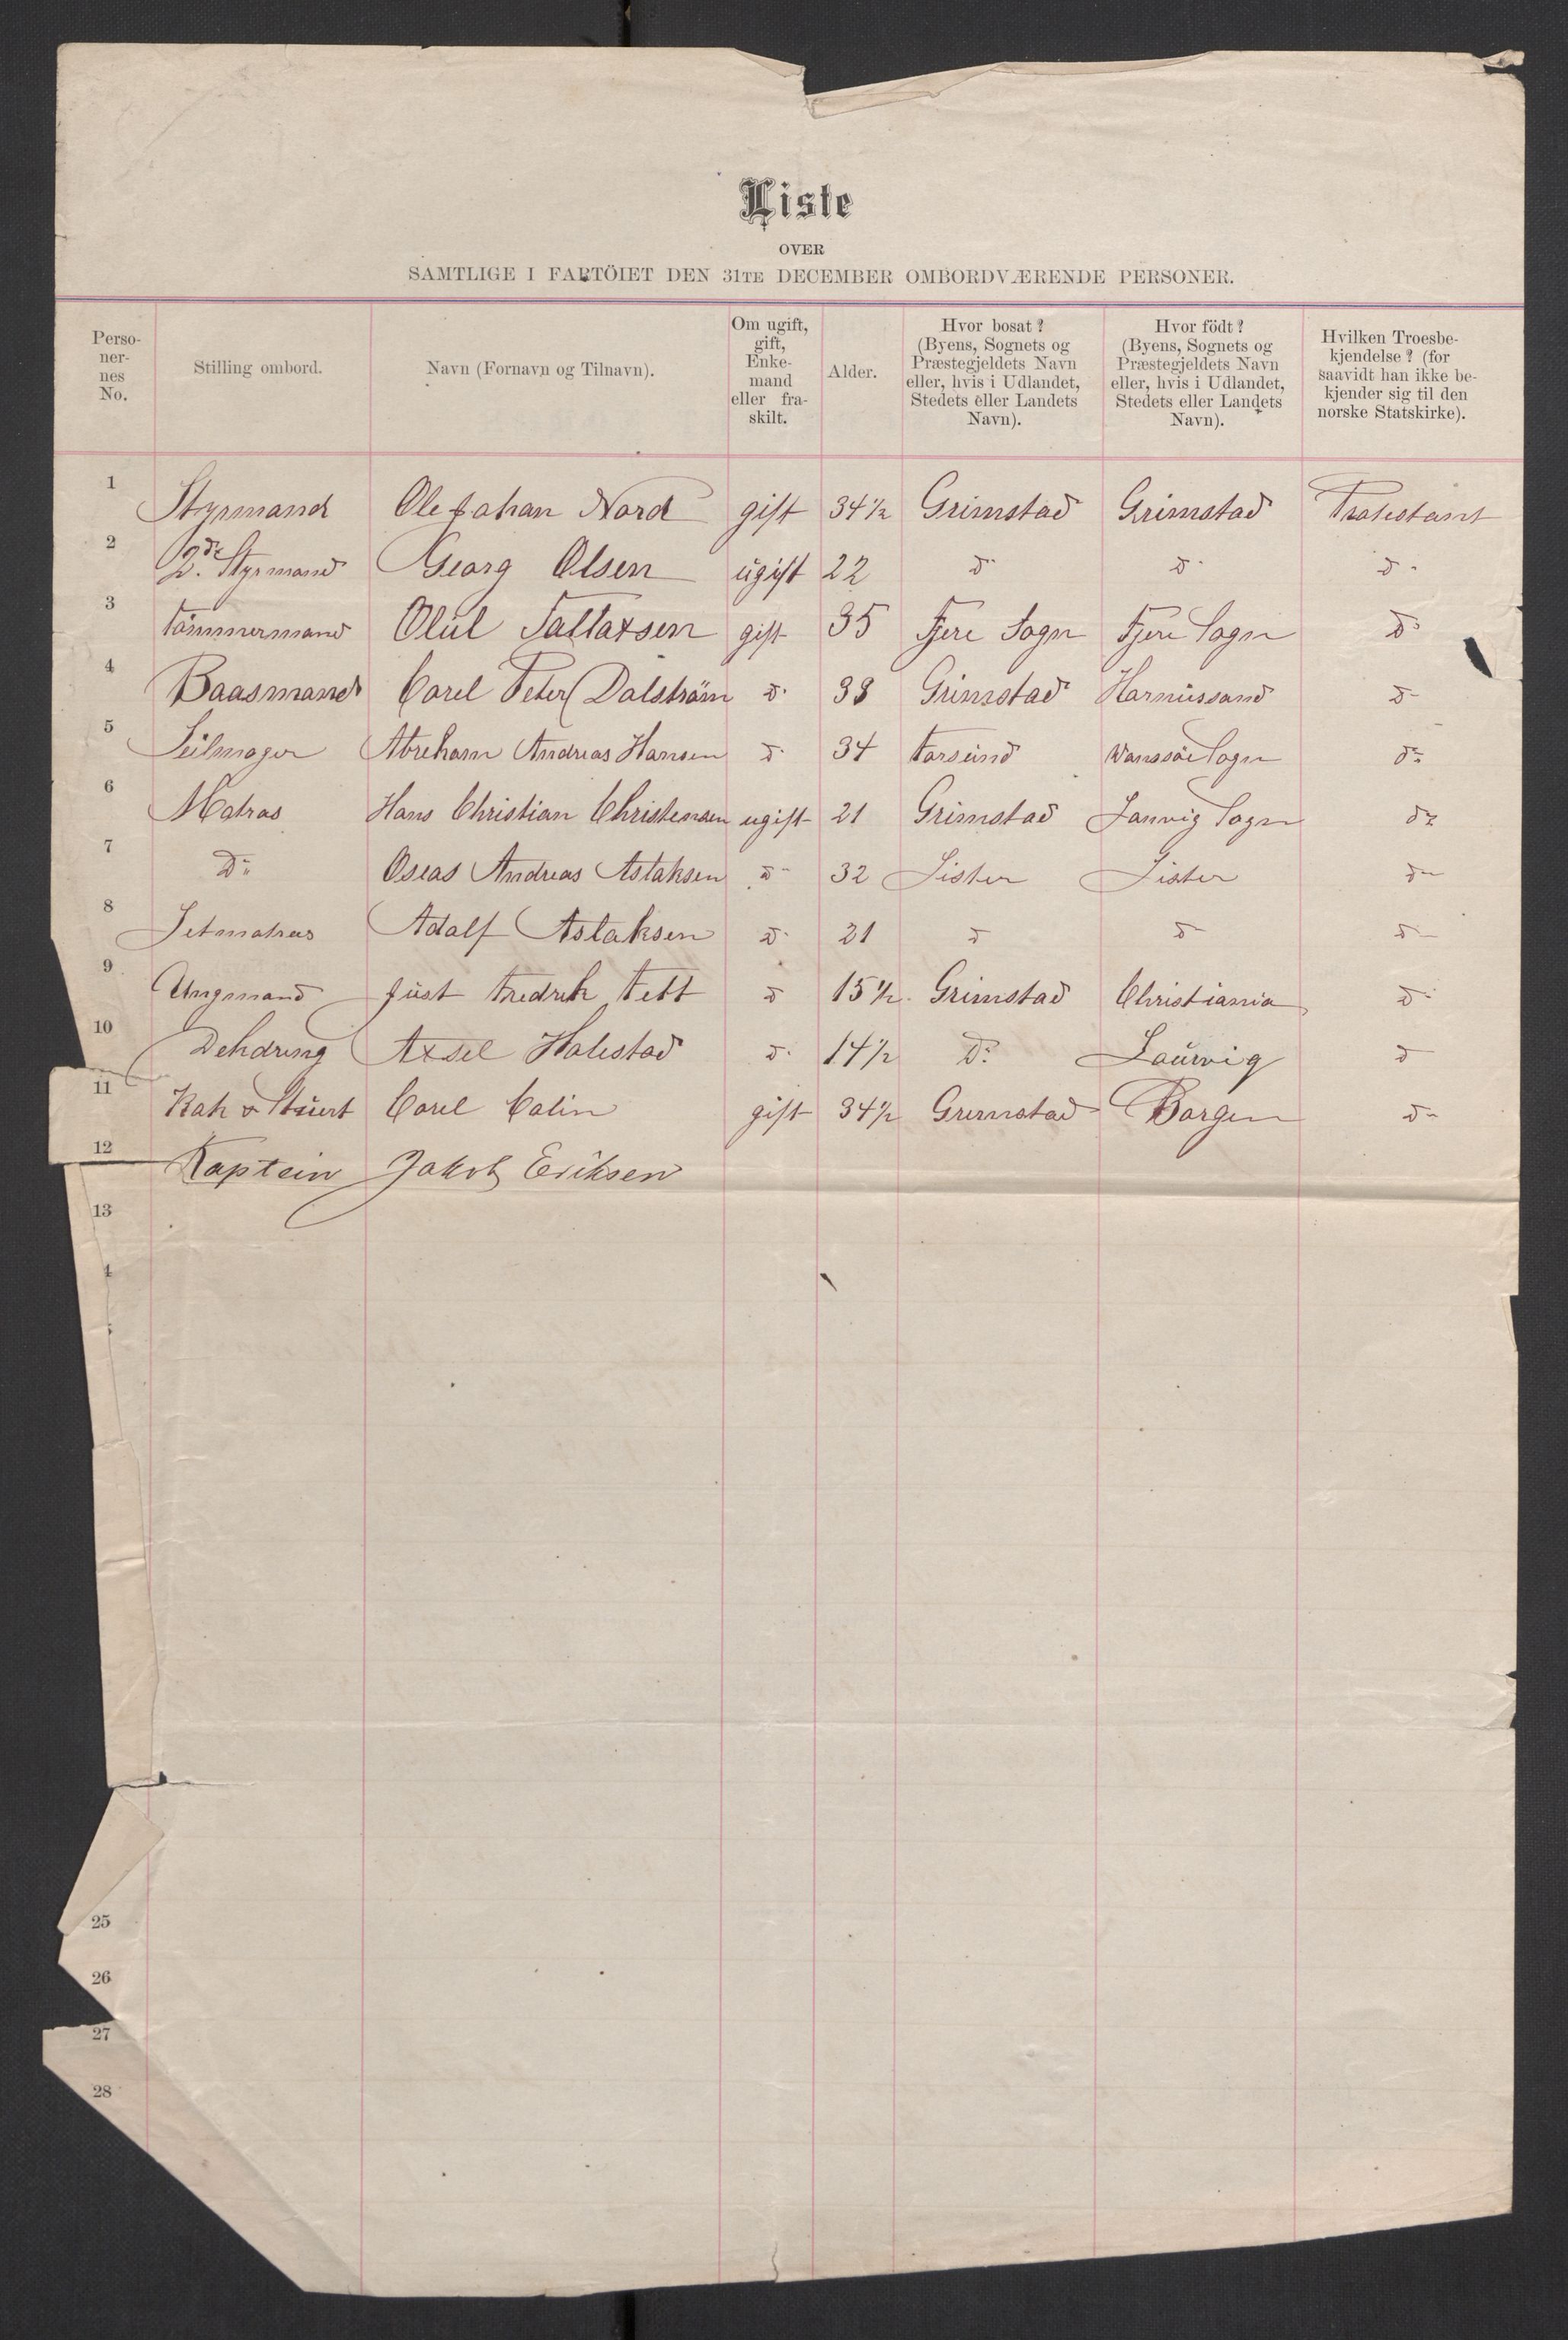 Liste
OVER
SAMTLIGE I FARTÖIET DEN 31TE DECEMBER OMBORDVÆRENDE PERSONER.
Perso-
ner-
nes
No.
Stilling ombord.
Navn (Fornavn og Tilnavn).
Om ugift,
gift,
Enke-
mand
eller fra-
skilt.
Alder.
Hvor bosat?
(Byens, Sognets og
Præstegjeldets Navn
eller, hvis i Udlandet,
Stedets eller Landets
Navn).
Hvor födt?
(Byens, Sognets og
Præstegjeldets Navn
eller, hvis i Udlandet,
Stedets eller Landets
Navn).
Hvilken Troesbe-
kjendelse? (for
saavidt han ikke be-
kjender sig til den
norske Statskirke).
1 Styrmand Ole Johan Nord gift 34 1/2 Grimstad Grimstad Protestant
2 2de Styrmand Georg Olsen ugift 22 do do do
3 Tömmermand Olul gift 35 Fjere Sogn Fjere Sogn do
4 Baasmand Carel Peter Dalström do 38 Grimstad Harnüssand do
5 Seilmager Abreham Andreas Hansen do 34 Farsund Sogn do
6 Matros Hans Christian Christensen ugift 21 Grimstad Sogn do
7 Do Oseas Andreas Aslaksen do 32 Lister Lister do
8 Letmatros Adolf Aslaksen do 21 do do do
9 Ungmand Just Fredrik Fett do 15 1/2 Grimstad Christiania do
10 Dekdreng Axsel Holestad do 14 1/2 Do Laurvig do
11 Kok & Stuert Carel Colin gift 34 1/2 Gremstad Bargen do
12 Kaptein Jakob Eriksen
13
4
25
26
27
28